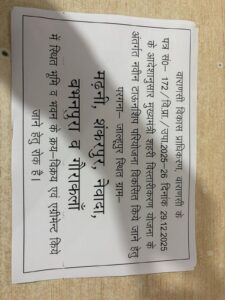 वाराणसी विकास प्राधिकरण, वाराणसी के
पत्र सं०– 172/वि.प्रा./उपा.2025–26 दिनांक 29.12.2025
के आदेशानुसार मुख्यमंत्री शहरी विस्तारीकरण योजना के
अंतर्गत नवीन टाऊनशिप परियोजना विकसित किये जाने हेतु
परगना– जाल्हूपुर स्थित ग्राम–
मढ़नी, शंकरपुर, नेवादा,
बभनपुरा व गौराकलाँ
में स्थित भूमि व भवन के क्रय–विक्रय एवं एग्रीमेन्ट किये
जाने हेतु रोक है।